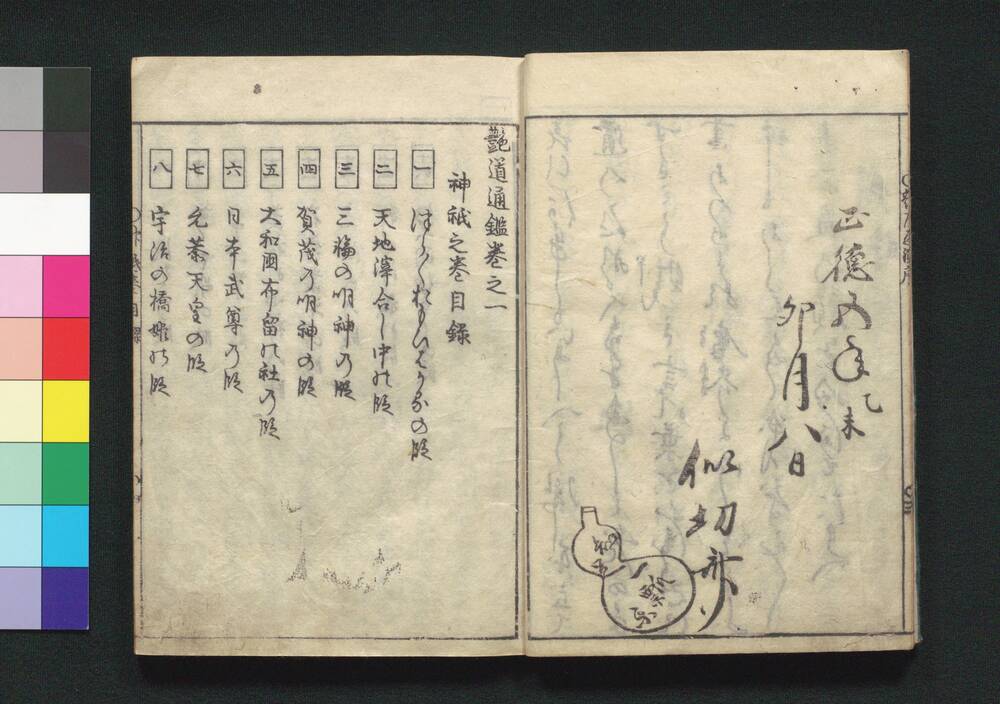 正徳五年乙未
卯月八日
似切斎
艶道通鑑巻之一
神祇之巻目録
一
の段
二 天地渾合し中の段
三 三輪の明神の段
四 賀茂の明神の段
五 大和国布留の社の段
六 日本武尊の段
七 允恭天皇の段
八 宇治の橋姫の段